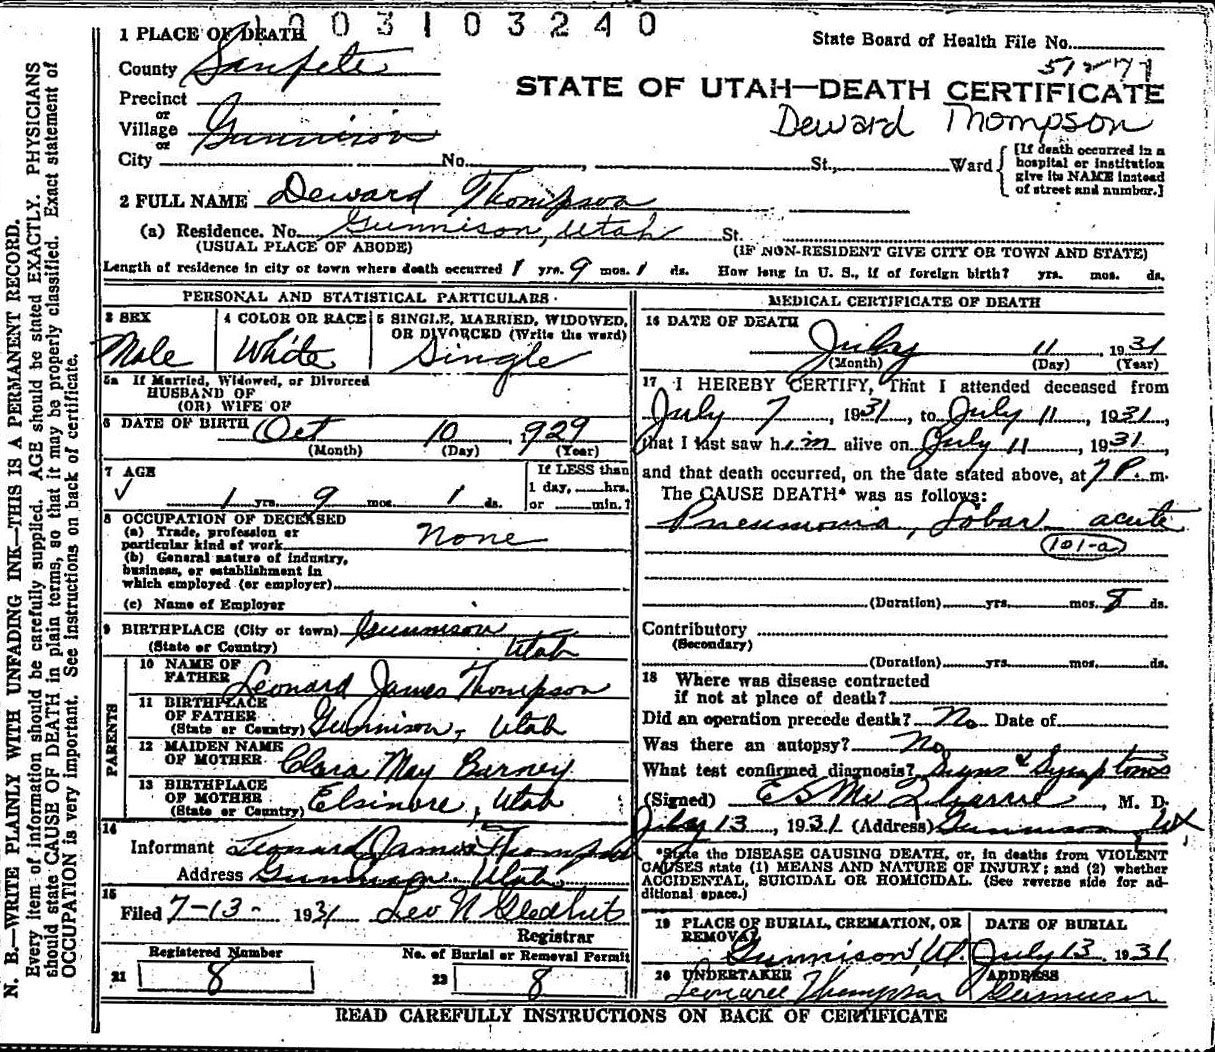 1003103240
1 PLACE OF DEATH
State Board of Health File No.
51277
County Sanpete
STATE OF UTAH—DEATH CERTIFICATE
Deward Thompson
Precinct
or
Village Gunnison
or
City No. , St., Ward
[If death occurred in a hospital or institution give its NAME instead of street and number.]
2 FULL NAME Deward Thompson
(a) Residence. No. Gunnison, Utah St.
(USUAL PLACE OF ABODE) (IF NON-RESIDENT GIVE CITY OR TOWN AND STATE)
Length of residence in city or town where death occurred 1 yrs. 9 mos. 1 ds. How long in U. S., if of foreign birth? yrs. mos. ds.
PERSONAL AND STATISTICAL PARTICULARS
3 SEX
Male
4 COLOR OR RACE
White
5 SINGLE, MARRIED, WIDOWED,
OR DIVORCED (Write the word)
Single
5a If Married, Widowed, or Divorced
HUSBAND OF
(OR) WIFE OF
6 DATE OF BIRTH Oct 10, 1929
(Month) (Day) (Year)
7 AGE
1 yrs. 9 mos. 1 ds.
If LESS than
1 day, hrs.
or min.?
8 OCCUPATION OF DECEASED
(a) Trade, profession or
particular kind of work None
(b) General nature of industry,
business, or establishment in
which employed (or employer)
(c) Name of Employer
9 BIRTHPLACE (City or town) Gunnison
(State or Country) Utah
PARENTS
10 NAME OF
FATHER Leonard James Thompson
11 BIRTHPLACE
OF FATHER
(State or Country) Gunnison, Utah
12 MAIDEN NAME
OF MOTHER Clara May Barney
13 BIRTHPLACE
OF MOTHER
(State or Country) Elsinore, Utah
14
Informant Leonard James Thompson
Address Gunnison Utah
15
Filed 7-13- 1931 Leo N Gledhill
Registrar
Registered Number
21 8
No. of Burial or Removal Permit
22 8
MEDICAL CERTIFICATE OF DEATH
16 DATE OF DEATH
July 11, 1931
(Month) (Day) (Year)
17 I HEREBY CERTIFY, That I attended deceased from
July 7, 1931, to July 11, 1931,
that I last saw him alive on July 11, 1931,
and that death occurred, on the date stated above, at 7 P. m.
The CAUSE DEATH* was as follows:
Pneumonia, Lobar acute
101-a
(Duration) yrs. mos. 8 ds.
Contributory
(Secondary)
(Duration) yrs. mos. ds.
18 Where was disease contracted
if not at place of death?
Did an operation precede death? No Date of
Was there an autopsy? No
What test confirmed diagnosis? Signs & Symptoms
(Signed) E S , M. D.
July 13, 1931 (Address) Gunnison Ut.
*State the DISEASE CAUSING DEATH, or, in deaths from VIOLENT
CAUSES state (1) MEANS AND NATURE OF INJURY; and (2) whether
ACCIDENTAL, SUICIDAL OR HOMICIDAL. (See reverse side for ad-
ditional space.)
19 PLACE OF BURIAL, CREMATION, OR
REMOVAL
Gunnison, Ut.
DATE OF BURIAL
July 13 1931
20 UNDERTAKER
Leonard Thompson
ADDRESS
Gunnison
READ CAREFULLY INSTRUCTIONS ON BACK OF CERTIFICATE
N. B.—WRITE PLAINLY WITH UNFADING INK—THIS IS A PERMANENT RECORD.
Every item of information should be carefully supplied. AGE should be stated EXACTLY. PHYSICIANS
should state CAUSE OF DEATH in plain terms, so that it may be properly classified. Exact statement of
OCCUPATION is very important. See instructions on back of certificate.